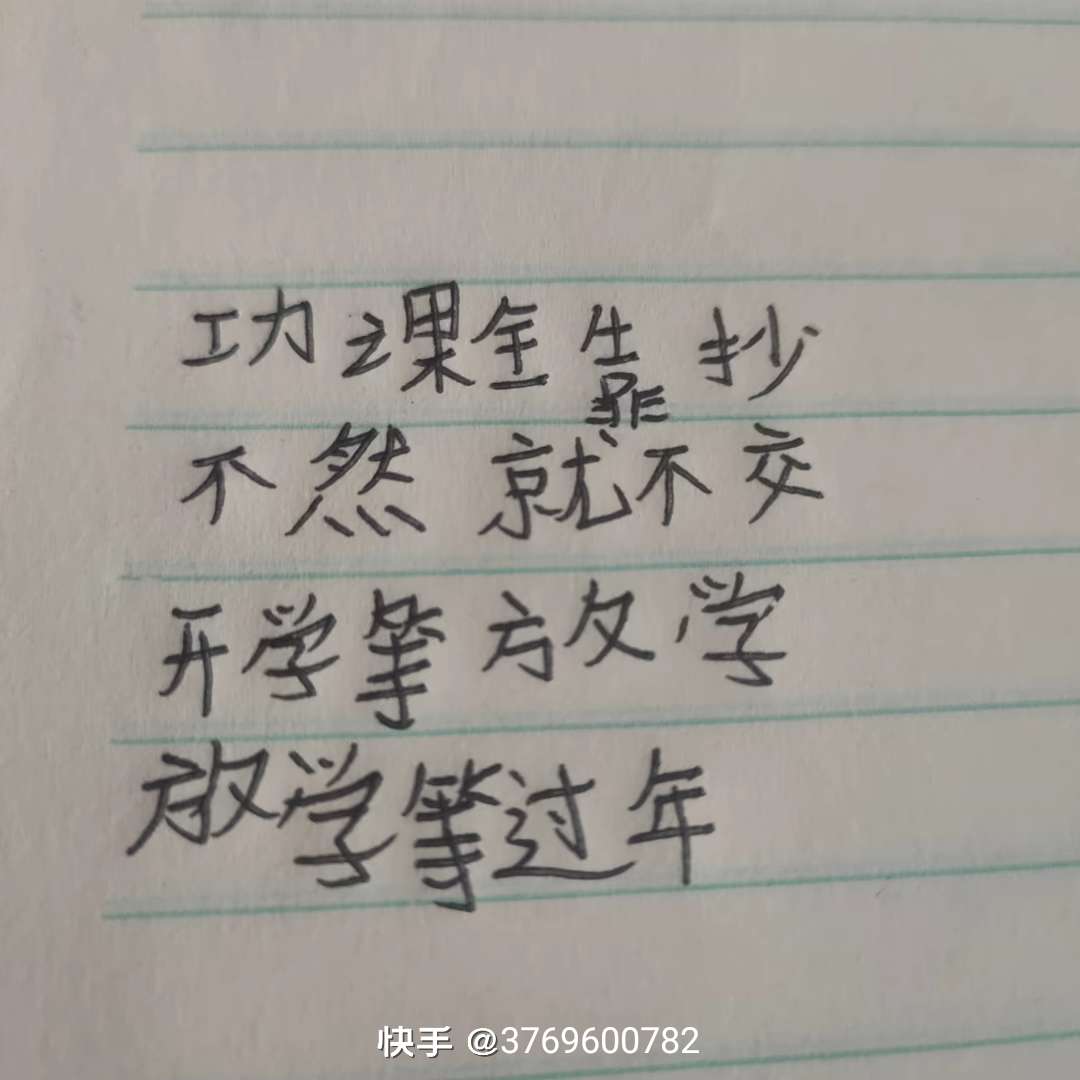 功课全靠抄
不然就不交
开学等放学
放学等过年
快手 @3769600782